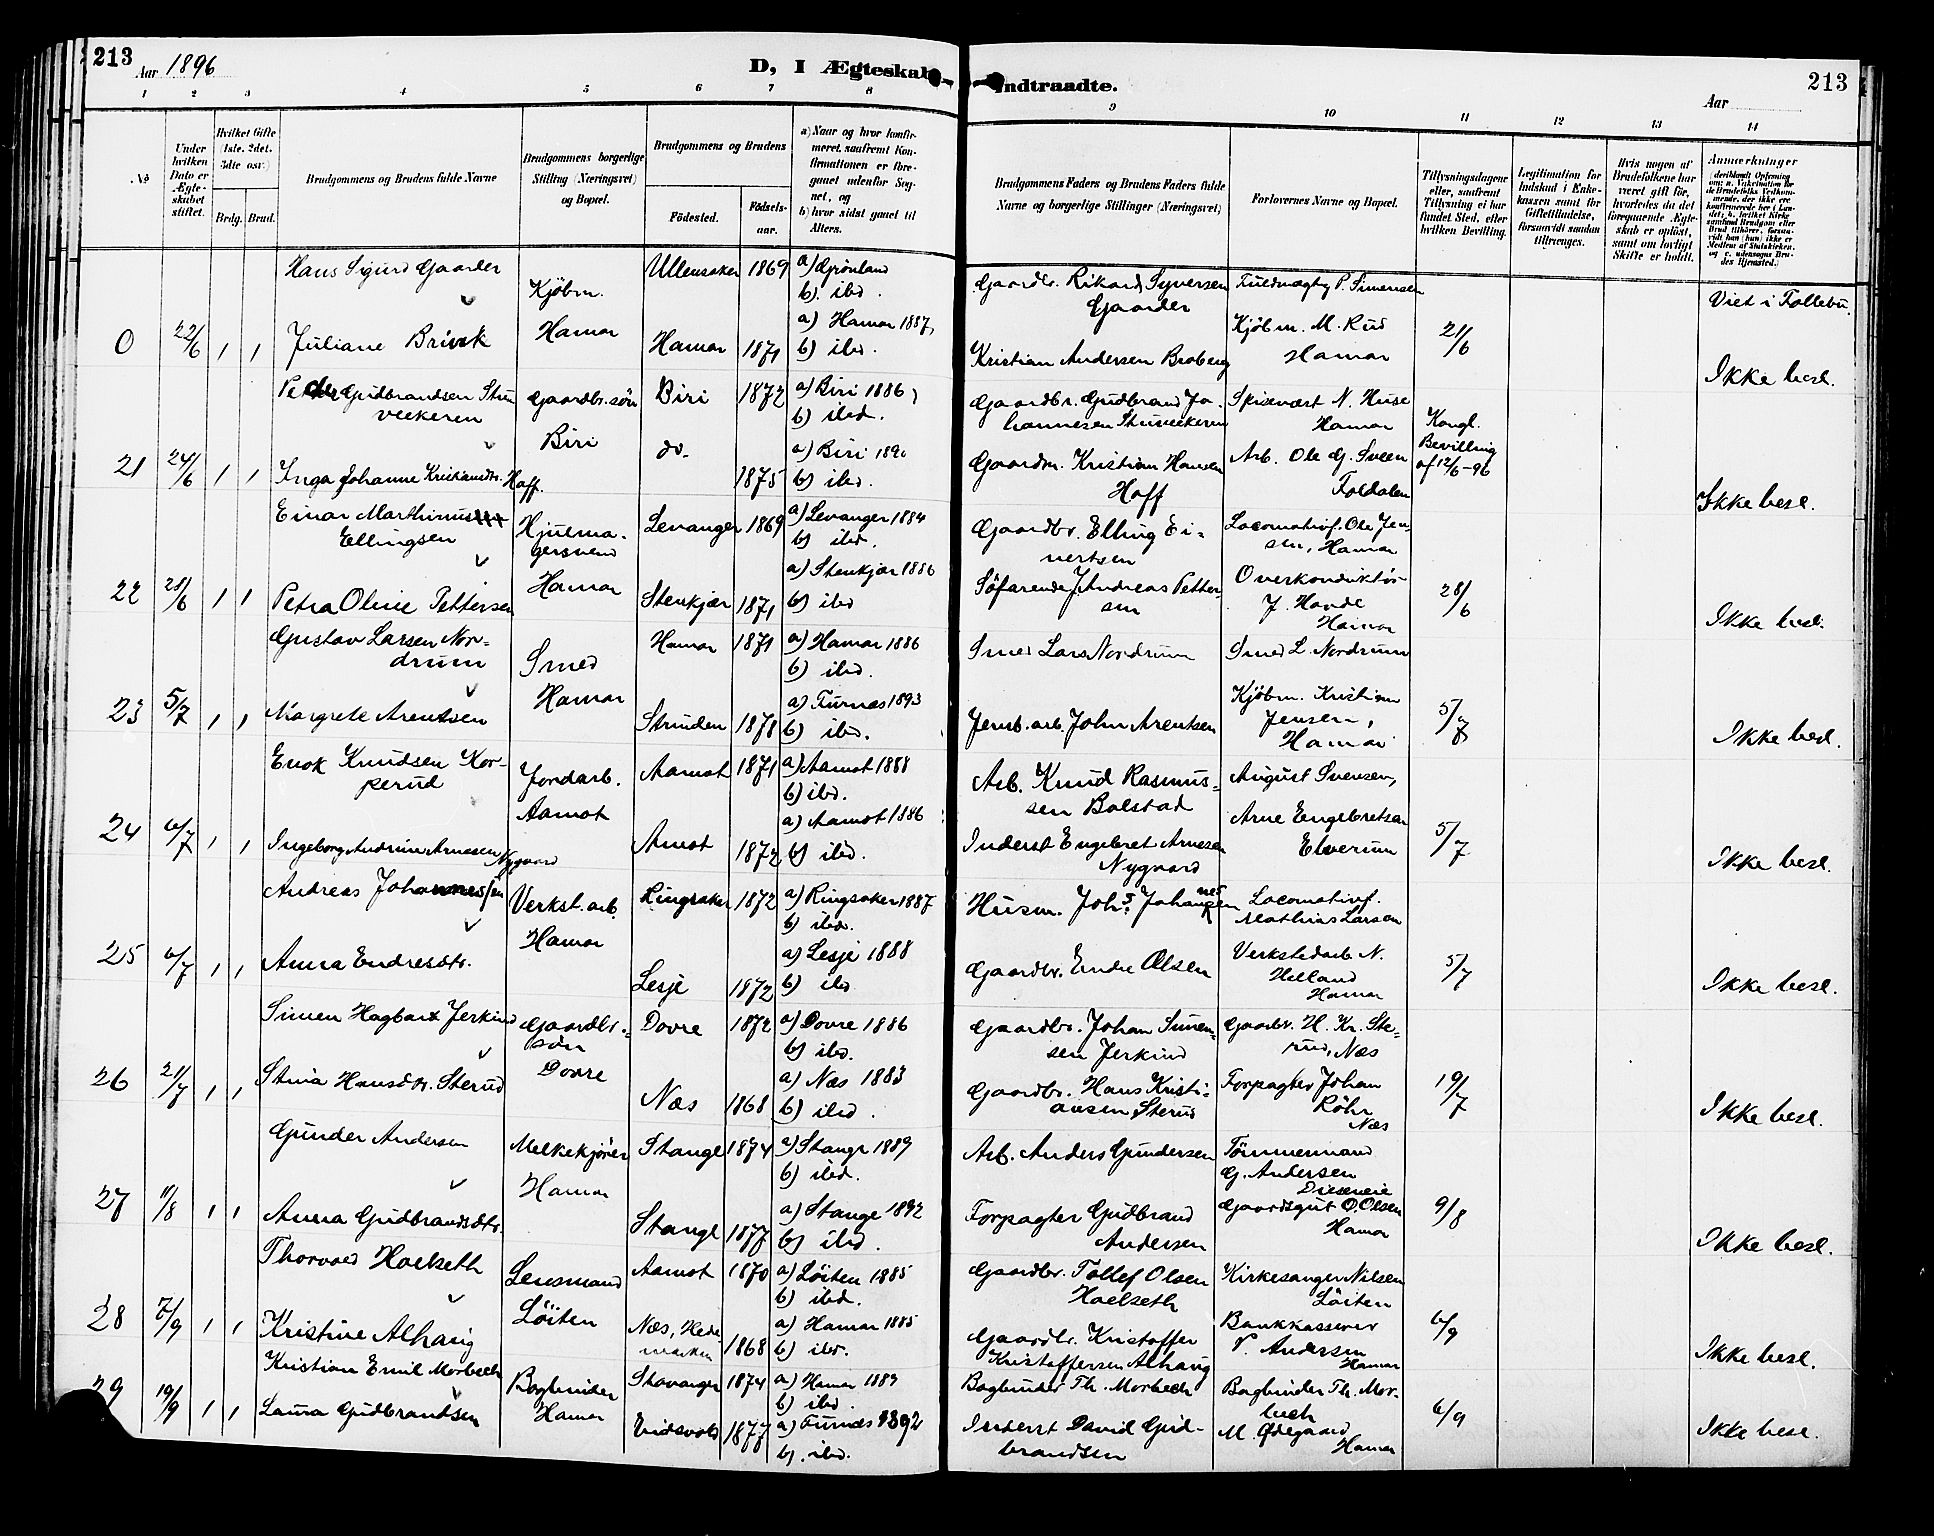 213
Aar 1896
D, I Ægteskab
Indtraadte.
Aar
213
1 2 3 4 5 6 7 8 9 10 11 12 13 14
No
Under hvilken Dato er Ægteskabet stiftet.
Hvilket Gifte (1ste, 2det, 3die osv.)
Brdg. Brud.
Brudgommens og Brudens fulde Navne
Brudgommens borgerlige Stilling (Næringsvei) og Bopæl.
Brudgommens og Brudens
Fødested.
Fødsels-aar.
a) Naar og hvor konfirmeret, saafremt Konfirmationen er foregaaet udenfor Sognet, og
b) hvor sidst gaaet til Alters.
Brudgommens Faders og Brudens Faders fulde Navne og borgerlige Stillinger (Næringsvei)
Forlovernes Navne og Bopæl.
Tillysningsdagene eller, saafremt Tillysning ei har fundet Sted, efter hvilken Bevilling.
Legitimation for Indskud i Enkekassen samt for Giftetilladelse, forsaavidt saadan tiltrænges.
Hvis nogen af Brudefolkene har været gift før, hvorledes da det foregaaende Ægteskab er opløst, samt om lovligt Skifte er holdt.
Anmærkninger
Hans Sigurd Gaarder Kjøbm. Ullensaker 1869 a) Grønland b) ibd. Gaardbr. Rikard Syversen Gaarder Fuldmægtig P. Simensen Viet i Follebu.
0 22/6 1 1 Juliane Hamar Hamar 1871 a) Hamar 1887, b) ibd. Kristian Andersen Braberg Kjøbm. M. Rud Hamar 21/6 Ikke besl.
Peder Gudbrandsen Stuveekeren Gaardbr.søn Biri 1872 a) Biri 1886, b) ibid. Gaardbr. Gudbrand Johannesen Stuveekeren Spisevært N. Huse Hamar Kongl. Bevilling af 12/6-96
21 24/6 1 1 Inga Johanne Kristiansdtr. Hoff. Biri do. 1875 a) Biri 1890 b) ibd. Gaardm. Kristian Hansen Hoff Arb. Ole G. Sveen Foldalen Ikke besl.
Einar Marthinus Ellingsen Hjulmagersvend Levanger 1869 a) Levanger 1884 b) ibd. Gaardbr. Elling Einertsen Locomotivf. Ole Jensen, Hamar
22 28/6 1 1 Petra Oline Pettersen Hamar Stenkjær 1871 a) Stenkjær 1886 b) ibd Søfarende J. Andreas Pettersen Overkonduktør J. Hovde Hamar 28/6 Ikke besl.
Gustav Larsen Nordrum Smed Hamar 1871 a) Hamar 1886 b) ibd. Smed Lars Nordrum Smed L. Nordrum
23 5/7 1 1 Margrete Arentsen Hamar Strinden 1878 a) Furnes 1893 b) ibd. Jernb. arb. John Arentsen Kjøbm. Kristian Jensen, Hamar 5/7 Ikke besl.
Enok Knudsen Korperud Jordarb. Aamot 1871 a) Aamot 1888 b) ibd. Arb. Knud Rasmussen Bolstad August Svensen,
24 6/7 1 1 Ingeborg Andrine Arnesen Nygaard Aamot Amot 1872 a) Aamot 1886 b) ibd. Inderst Engebret Arnesen Nygaard Arne Engebretsen Elverum 5/7 Ikke besl.
Andreas Johannessen Verkst. arb. Ringsaker 1872 a) Ringsaker 1887 b) ibd. Husm. Johs. Johannesen Locomotivf. Mathias Larsen
25 6/7 1 1 Anna Endresdtr. Hamar Lesje 1872 a) Lesje 1888 b) ibd Gaardbr. Endre Olsen Verkstedarb. N. Helland Hamar 5/7 Ikke besl.
Simen Hagbart Jerkind Gaardbr-søn Dovre 1872 a) Dovre 1886 b) ibd. Gaardbr. Johan Simensen Jerkind Gaardbr. H. Kr. Sterud, Næs
26 21/7 1 1 Stina Hansdtr. Sterud Dovre Næs 1868 a) Næs 1883 b) ibd. Gaardbr. Hans Kristiansen Sterud Forpagter Johan Røhr Næs 19/7 Ikke besl.
Gunder Andersen Melkekjører Stange 1874 a) Stange 1889 b) ibd. Arb. Anders Gundersen Tømmermand G. Andersen
27 11/8 1 1 Anna Gudbrandsdtr. Hamar Stange 1877 a) Stange 1892 b) ibd. Forpagter Gudbrand Andersen Gaardsgut O. Olsen Hamar 9/8 Ikke besl.
Thorvald Hoelseth Lensmand Aamot 1870 a) Løiten 1885 b) ibd. Gaardbr. Tollef Olsen Hoelseth Kirkesanger Nilsen Løiten
28 7/9 1 1 Kristine Alhaug Løiten Næs, Hedemarken 1868 a) Hamar 1885 b) ibd. Gaardbr. Kristoffer Kristoffersen Alhaug Bankkasserer P. Andersen Hamar 6/9 Ikke besl.
Kristian Emil Morbech Bogbinder Stavanger 1874 a) Hamar 1889 b) ibd. Bogbinder Th. Morbech Bogbinder Th. Morbech
29 19/9 1 1 Laura Gudbrandsen Hamar Eidsvold 1877 a) Furnes 1892 b) ibd. Inderst David Gudbrandsen M. Ødegaard Hamar 6/9 Ikke besl.